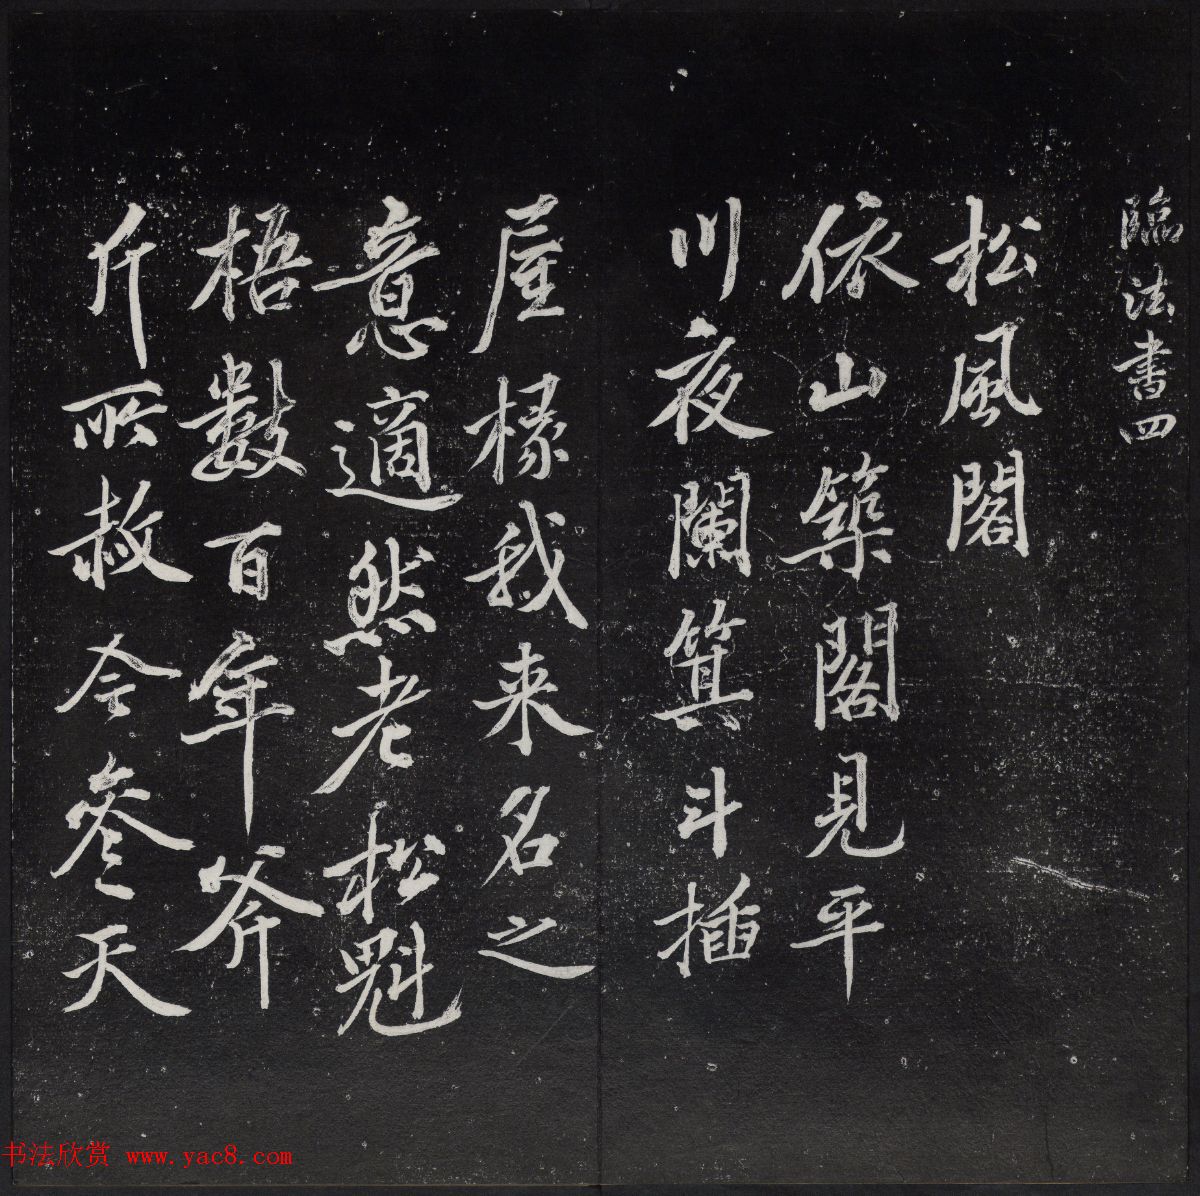 臨法書四
松風閣
依山築閣見平
川夜闌箕斗插
屋椽我来名之
意適然老松魁
梧數百年斧
斤所赦令參天
书法欣赏 www.yac8.com